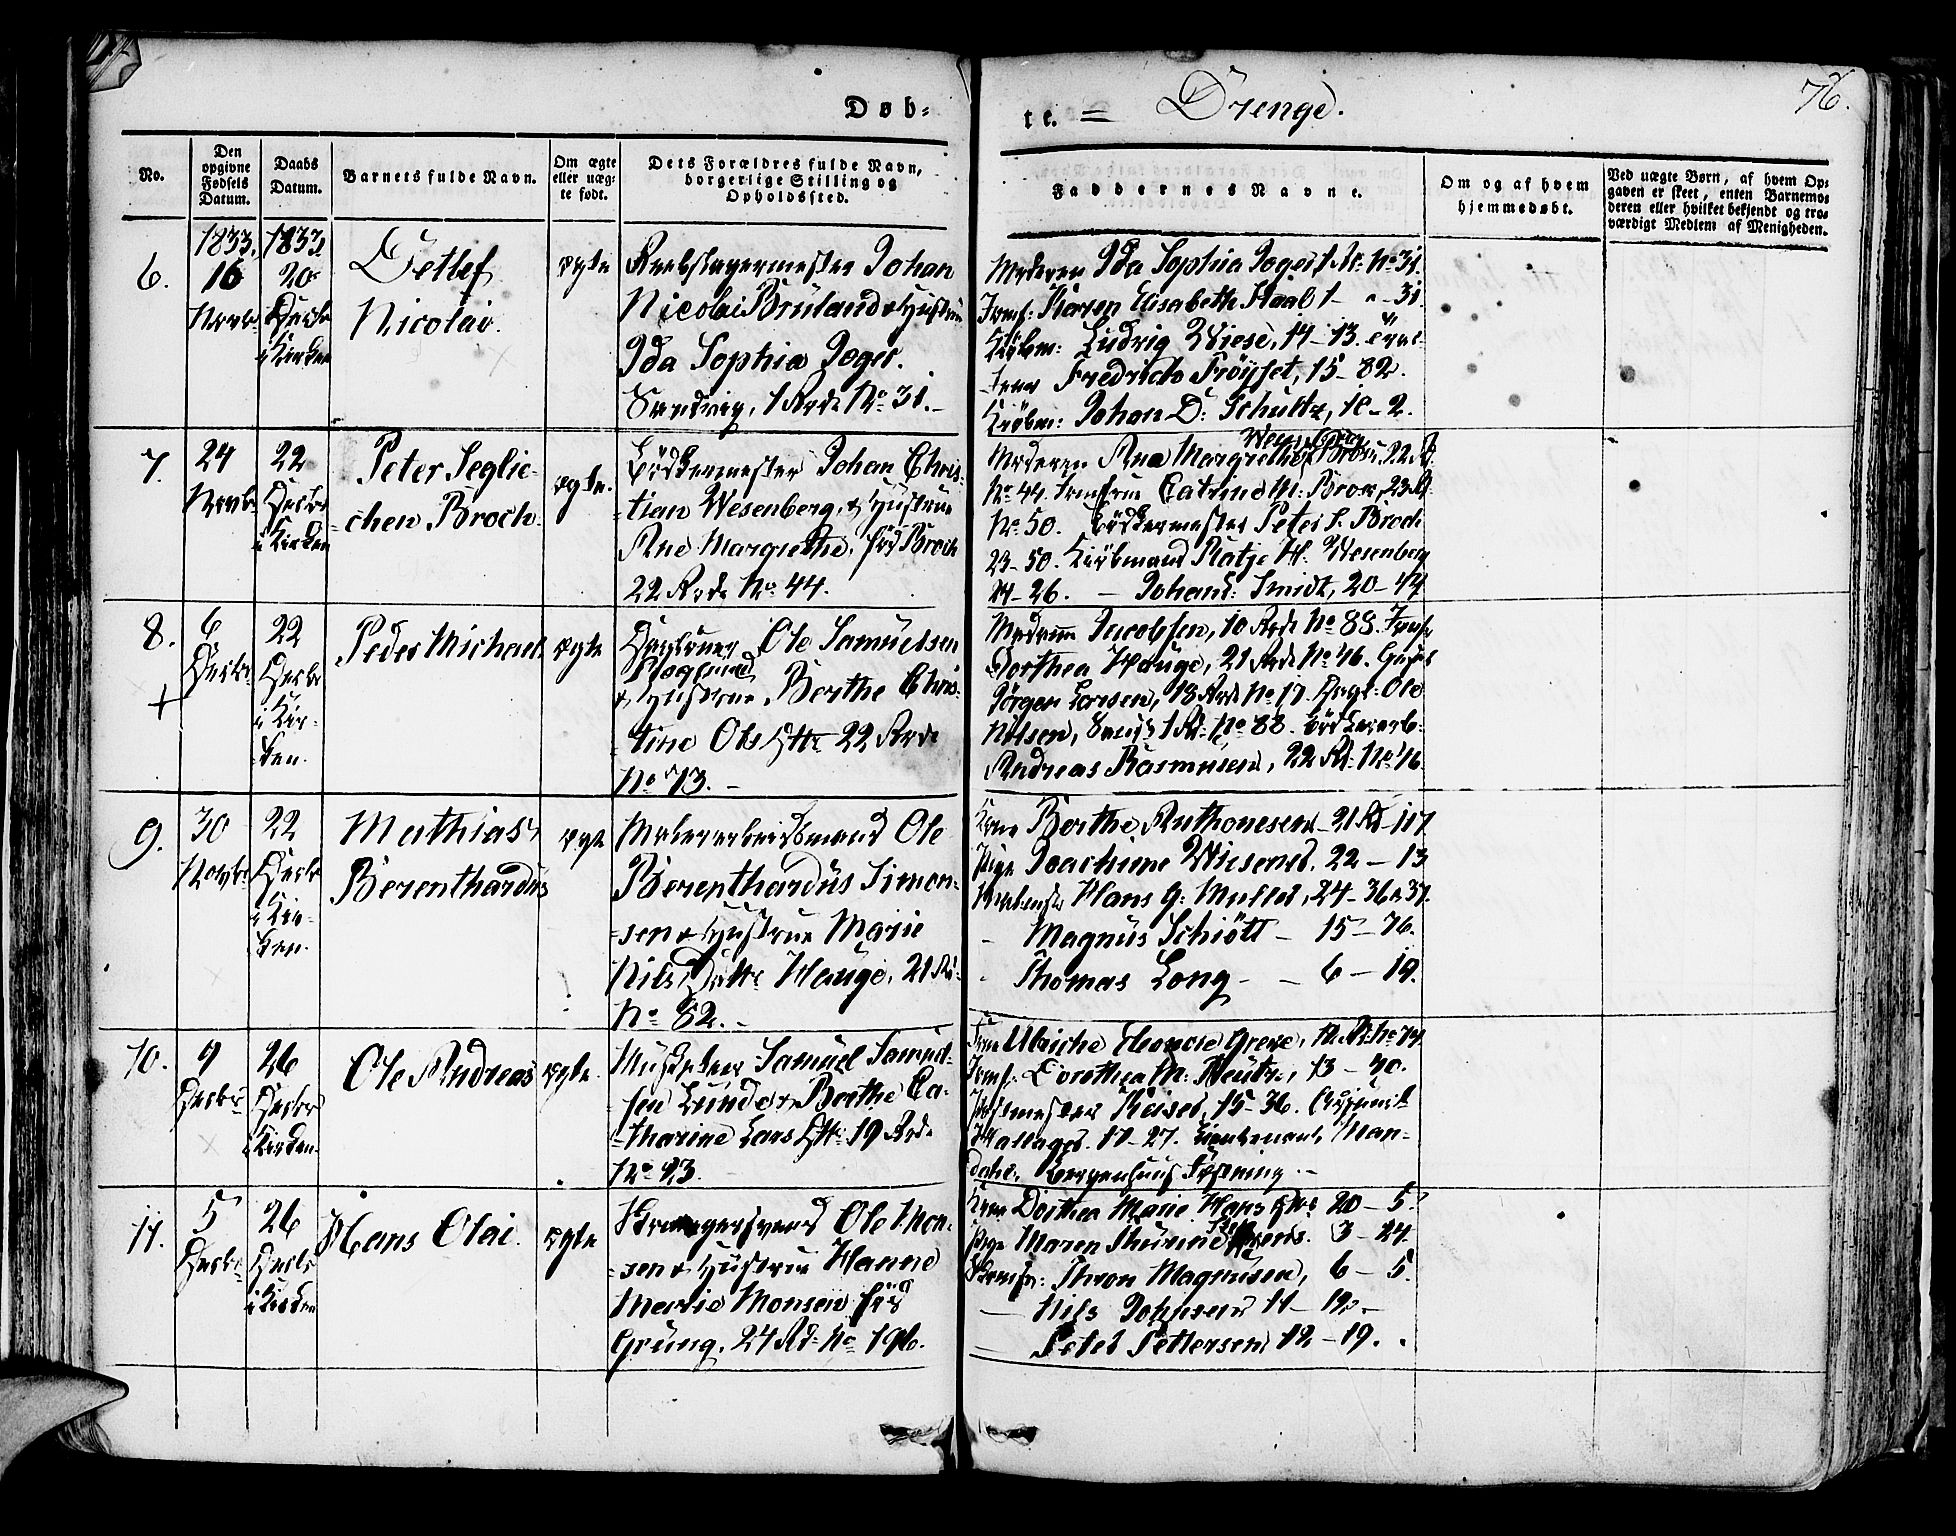 Døb-
te. = Drenge.
76.
No.
Den opgivne Fødsels Datum.
Daabs Datum.
Barnets fulde Navn.
Om ægte eller uægte født.
Dets Forældres fulde Navn, borgerlige Stilling og Opholdssted.
Faddernes Navne.
Om og af hvem hjemmedøbt.
Ved uægte Børn, af hvem Opgaven er skeet, enten Barnemoderen eller hvilket bekjendt og troværdigt Medlem af Menigheden.
6.
1833.
16
Novbr
1833
20
Decbr
i Kirken
Detlef
Nicolai.
ægte
Reebslagermester Johan
Nicolai Bruland & Hustrue
Ida Sophia Jæger.
Sandvig, 1 Rode No 31.
Moderen Ida Sophia Jæger, 1 R. No 31.
Jomf: Karen Elisabeth Staal 1 - " - 31
Kiøbm: Ludvig Wiese, 14 - 13.
Fredrich Frøysset, 15 - 82.
Kiøbm: Johan D: Schultz, 10 - 2.
7.
24
Novbr
22
Decbr
i Kirken
Peter Seglic-
chen Broch.
ægte.
Bødkermester Johan Chris-
tian Wesenberg, & Hustrue
Ane Margrethe, fød Broch
22 Rode No 44.
Moderen Ana Margrethe Wesenberg f. Broch, 22 R.
No 44. Jomfrue Catrine M: Broch, 23 R.
No 50. Bødkermester Peter S. Broch
23 - 50. Kiøbmand Ratje H: Wesenberg
21 - 26. - Johan L: Smidt, 20 - 44
8.
+
6
Decbr
22
Decbr
i Kir-
ken.
Peder Michael
ægte
Ole Samuelsen
Røglund
& Hustrue, Berthe Chris-
tine Ols Dttr 22 Rode
No 73.
Madame Jacobsen, 10 Rode No 88. Jomfr
Dorthea Hauge, 21 Rode No 46.
Jørgen Larsen, 18 Rode No 17. Ole
Nilsen, 1 R: No 88.
Andreas Rasmusen, 22 R: No 46.
9.
30
Novbr
22
Decbr
i Kir-
ken.
Mathias
Berenthardus
ægte
Ole
Berenthardus Simon-
sen & Hustrue Marie
Nils Dattr Hauge, 21 R:
No 82.
Kone Berthe Anthonesen - 21 R - 117
Pige Joachime Wiesener. 22 - 13
Hans G: Muller, 24 - 36 & 37.
- Magnus Schiøtt - 15 - 76.
- Thomas Long - - 6 - 19.
10.
9
Decbr
26
Decbr
i Kirken.
Ole Andreas
ægte
Samuel Samuel-
sen Lunde & Berthe Ca-
tharine Lars Dttr 19 Rode
No 93.
Frue Ulriche Eleonore Greve, 12 R: No 14
Jomf: Dorothea M: Reutz, 13 - 40.
Postmester Reiser, 15 - 36.
Hallager. 17 - 27. Lieutenant Man-
dahl, Bergenhuus Fæstning. -
11.
5
Decbr
26
Decbr
i Kirken
Hans Olai.
ægte
Ole Mon-
sen & Hustrue Hanne
Marie Monsen fød
Grüng. 24 R: No 196.
Kone Dorthea Marie Hans Dttr 20 - 5
Pige Maren Thurine 3 - 24.
Thron Magnusen, 6 - 5.
- Nils Johnsen 11 - 12. -
- Peter Pettersen 12 - 19.